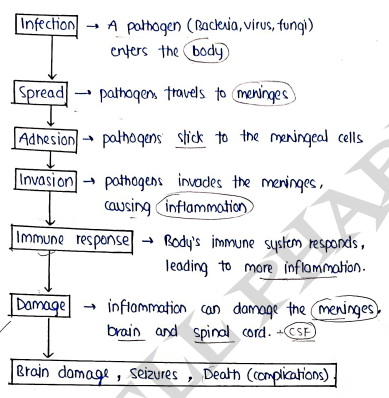 Infection → A pathogen (Bacteria, virus, fungi)
enters the body
Spread → pathogens travels to meninges
Adhesion → pathogens stick to the meningeal cells
Invasion → pathogens invades the meninges,
causing inflammation
Immune response → Body's immune system responds,
leading to more inflammation.
Damage → inflammation can damage the meninges,
brain and spinal cord. + CSF
Brain damage, seizures, Death (complications).